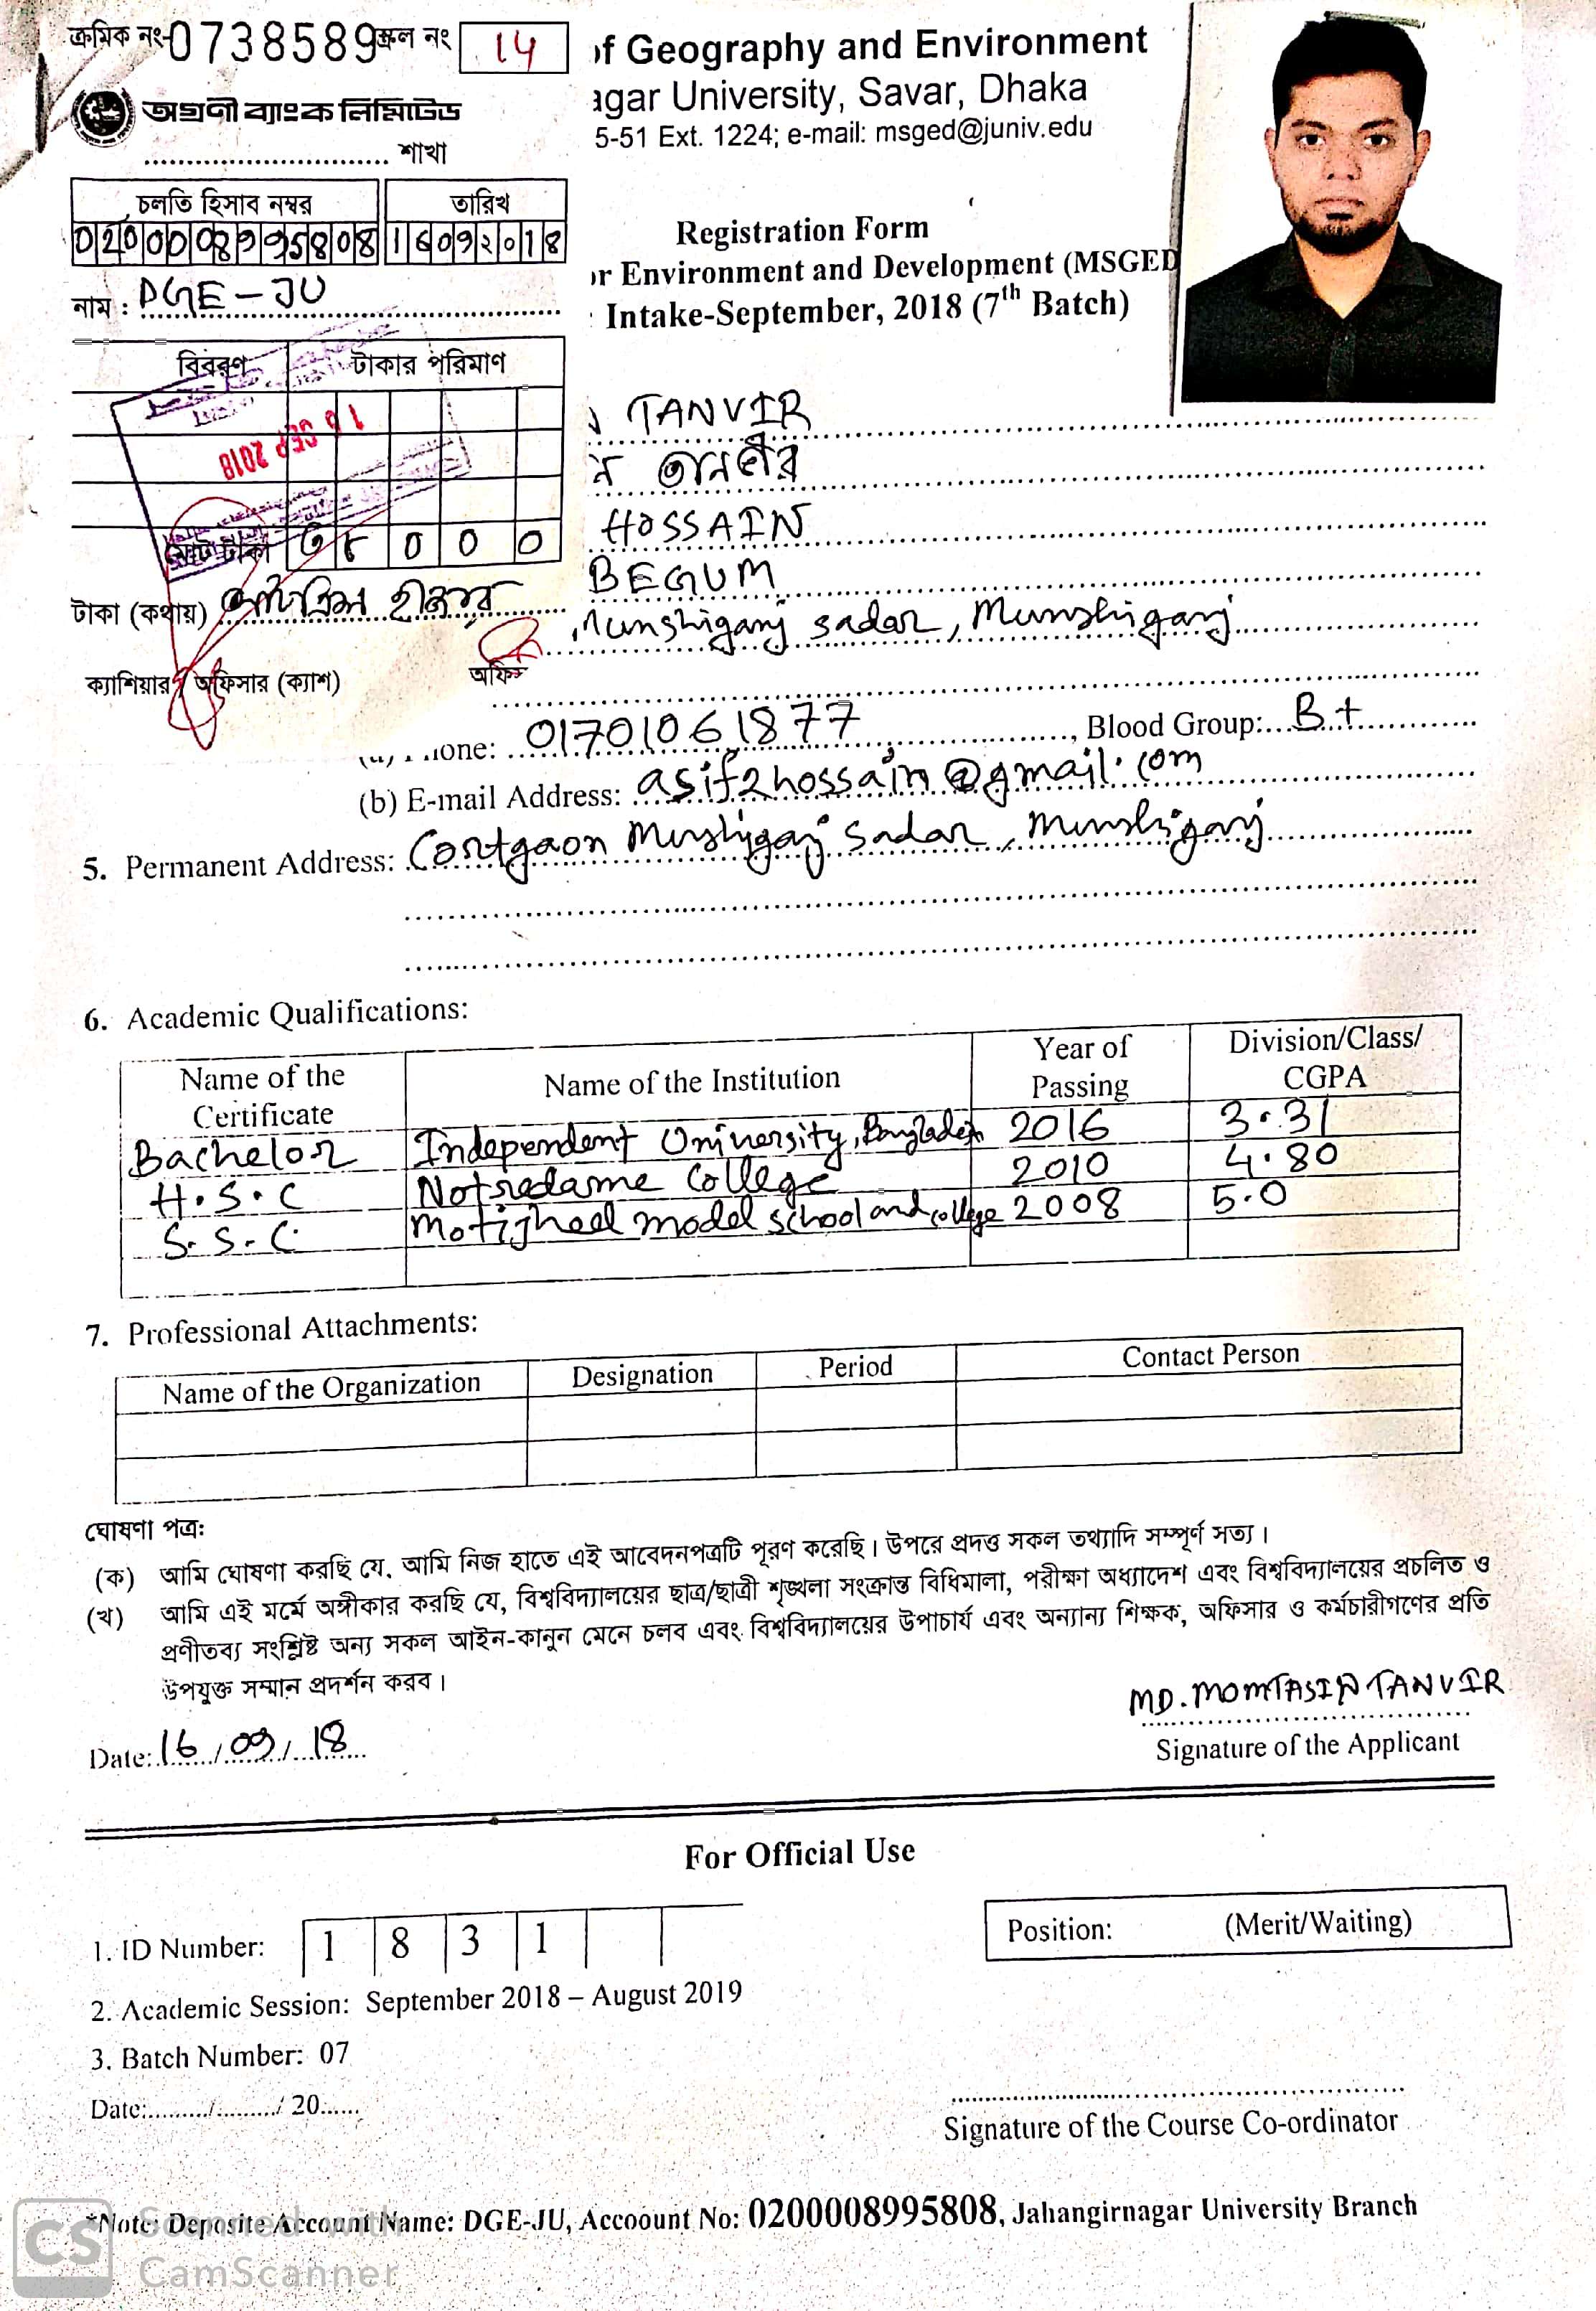 ক্রমিক নং-0738589 স্ক্রল নং 14
অগ্রণী ব্যাংক লিমিটেড
শাখা
চলতি হিসাব নম্বর তারিখ
16092018
নাম : DGE-JU
বিবরণ টাকার পরিমাণ
SEP 2018
মোট টাকা ৩৮০০০
টাকা (কথায়) হাজার
ক্যাশিয়ার অফিসার (ক্যাশ) অফি
of Geography and Environment
agar University, Savar, Dhaka
5-51 Ext. 1224; e-mail: msged@juniv.edu
Registration Form
or Environment and Development (MSGED
Intake-September, 2018 (7th Batch)
N TANVIR
ন তানভীর
HOSSAIN
BEGUM
Munshiganj sadar, Munshiganj
hone: 01701061877, Blood Group: B+
(b) E-mail Address: asif2hossain@gmail.com
5. Permanent Address: Munshiganj Sadar, Munshiganj
6. Academic Qualifications:
Name of the Certificate Name of the Institution Year of Passing Division/Class/ CGPA
Bachelor Independent University, Bangladesh 2016 3.31
H.S.C Notredame College 2010 4.80
S.S.C. Motijheel model school and college 2008 5.0
7. Professional Attachments:
Name of the Organization Designation Period Contact Person
ঘোষণা পত্র:
(ক) আমি ঘোষণা করছি যে, আমি নিজ হাতে এই আবেদনপত্রটি পূরণ করেছি। উপরে প্রদত্ত সকল তথ্যাদি সম্পূর্ণ সত্য।
(খ) আমি এই মর্মে অঙ্গীকার করছি যে, বিশ্ববিদ্যালয়ের ছাত্র/ছাত্রী শৃঙ্খলা সংক্রান্ত বিধিমালা, পরীক্ষা অধ্যাদেশ এবং বিশ্ববিদ্যালয়ের প্রচলিত ও
প্রণীতব্য সংশ্লিষ্ট অন্য সকল আইন-কানুন মেনে চলব এবং বিশ্ববিদ্যালয়ের উপাচার্য এবং অন্যান্য শিক্ষক, অফিসার ও কর্মচারীগণের প্রতি
উপযুক্ত সম্মান প্রদর্শন করব।
MD. MOMTASIN TANVIR
Date: 16/09/18
Signature of the Applicant
For Official Use
1. ID Number: 1 8 3 1
Position: (Merit/Waiting)
2. Academic Session: September 2018 – August 2019
3. Batch Number: 07
Date:........./........./ 20......
Signature of the Course Co-ordinator
*Note: Deposite Account Name: DGE-JU, Accoount No: 0200008995808, Jahangirnagar University Branch
CS Scanned with
CamScanner